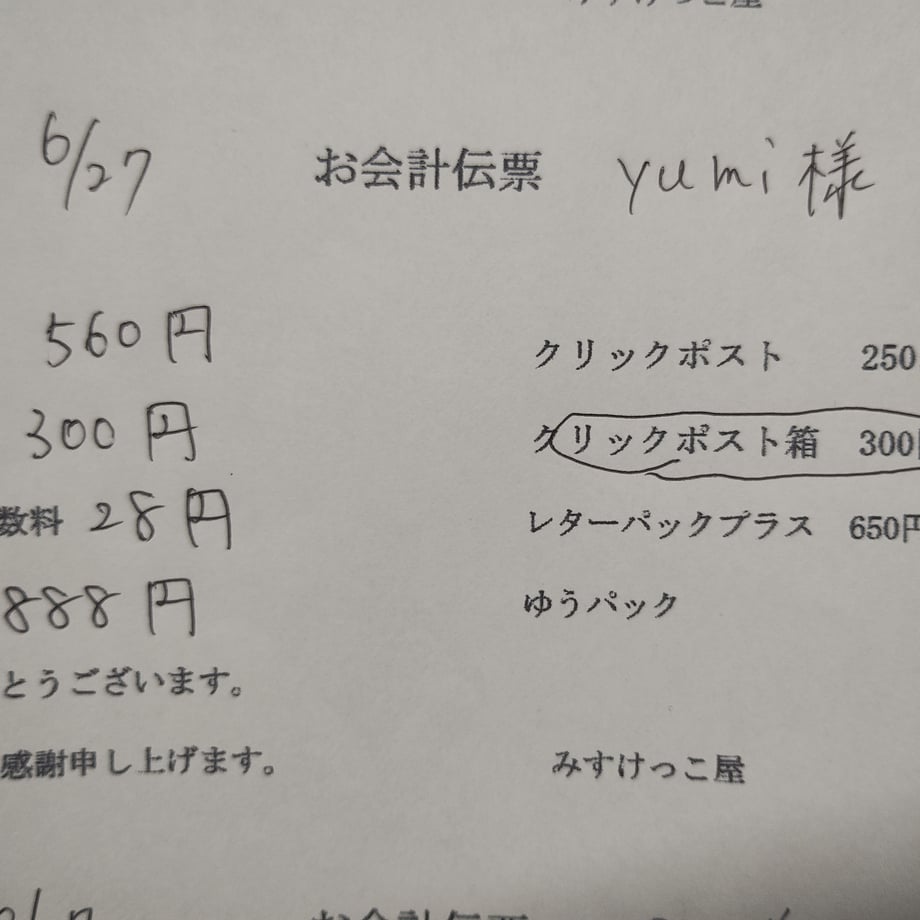 みすけっこ屋
6/27 お会計伝票 yumi様
560円 クリックポスト 250
300円 クリックポスト箱 300円
数料 28円 レターパックプラス 650円
888円 ゆうパック
とうございます。
感謝申し上げます。 みすけっこ屋
お会計伝票